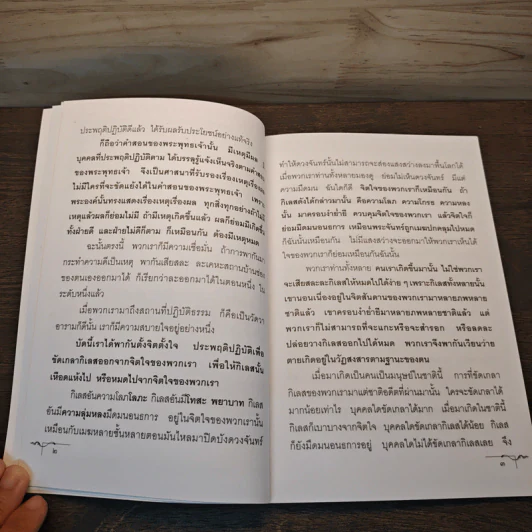 ประพฤติปฏิบัติดีแล้ว ได้รับผลรับประโยชน์อย่างแท้จริง
ก็ถือว่าคำสอนของพระพุทธเจ้านั้น มีเหตุมีผล
บุคคลที่ประพฤติปฏิบัติตาม ได้บรรลุรู้แจ้งเห็นจริงตามคำสอน
ของพระพุทธเจ้า จึงเป็นศาสนาที่รับรองเรื่องเหตุเรื่องผล
ไม่มีใครที่จะขัดแย้งได้ในคำสอนของพระพุทธเจ้า เพราะ
พระองค์นั้นทรงแสดงเรื่องเหตุเรื่องผล ทุกสิ่งทุกอย่างถ้าไม่มี
เหตุแล้วผลก็ย่อมไม่มี ถ้ามีเหตุเกิดขึ้นแล้ว ผลก็ย่อมมีเกิดขึ้น
ทั้งฝ่ายดี และฝ่ายไม่ดีก็ตาม ก็เหมือนกัน ต้องมีเหตุหมด
ฉะนั้นตรงนี้ พวกเราก็มีความเชื่อมั่น ถ้าการพากันมา
กระทำความดีเป็นเหตุ พากันเสียสละ ละเคหะสถานบ้านช่อง
ของตนเองออกมาได้ ก็เรียกว่าละออกมาได้ในตอนหนึ่ง ใน
ระดับหนึ่งแล้ว
เมื่อพวกเรามาถึงสถานที่ปฏิบัติธรรม ก็คือเป็นวัดวา
อารามก็ดีนั้น เราก็มีความสบายใจอยู่อย่างหนึ่ง
บัดนี้เราได้พากันตั้งจิตตั้งใจ ประพฤติปฏิบัติเพื่อ
ขัดเกลากิเลสออกจากจิตใจของพวกเรา เพื่อให้กิเลสนั้น
เหือดแห้งไป หรือหมดไปจากจิตใจของพวกเรา
กิเลสอันความโลภโลภะ กิเลสอันมีโทสะ พยาบาท กิเลส
อันมีความลุ่มหลงมืดมนอนธการ อยู่ในจิตใจของพวกเรานั้น
เหมือนกับเมฆหลายชั้นหลายตอนมันไหลมาปิดบังดวงจันทร์
๒
ทำให้ดวงจันทร์นั้นไม่สามารถจะส่องแสงสว่างลงมาพื้นโลกได้
เมื่อพวกเราท่านทั้งหลายมองดู ย่อมไม่เห็นดวงจันทร์ มีแต่
ความมืดมน ฉันใดก็ดี จิตใจของพวกเราก็เหมือนกัน ถ้า
กิเลสดังได้กล่าวมานั้น คือความโลภ ความโกรธ ความหลง
นั้น มาครอบงำย่ำยี ควบคุมจิตใจของพวกเรา แล้วจิตใจก็
ย่อมมืดมนอนธการ เหมือนพระจันทร์ถูกเมฆปกคลุมไปหมด
ก็ฉันนั้นเหมือนกัน ไม่มีแสงสว่างจะออกมาให้พวกเราเห็นได้
ใจของพวกเราก็ย่อมเหมือนกันฉันนั้น
พวกเราท่านทั้งหลาย คนเราเกิดขึ้นมานั้น ไม่ใช่พวกเรา
จะเสียสละละกิเลสให้หมดไปได้ง่าย ๆ เพราะกิเลสทั้งหลายนั้น
เขานอนเนื่องอยู่ในจิตสันดานของพวกเรามาหลายภพหลาย
ชาติแล้ว เขาครอบงำย่ำยีมาหลายภพหลายชาติแล้ว แต่
พวกเราก็ไม่สามารถที่จะแกะหรือจะสำรอก หรือลดละ
ปล่อยวางกิเลสออกไปได้หมด พวกเราจึงพากันเวียนว่าย
ตายเกิดอยู่ในวัฏสงสารตามฐานะของตน
เมื่อมาเกิดเป็นคนเป็นมนุษย์ในชาตินี้ การที่ขัดเกลา
กิเลสของพวกเรามาแต่ชาติอดีตที่ผ่านมานั้น ใครจะขัดเกลาได้
มากน้อยเท่าไร บุคคลใดขัดเกลาได้มาก เมื่อมาเกิดในชาตินี้
กิเลสก็เบาบางจากจิตใจ บุคคลใดขัดเกลากิเลสได้น้อย กิเลส
ก็ยังมืดมนอนธการอยู่ บุคคลใดไม่ได้ขัดเกลากิเลสเลย จึง
๓